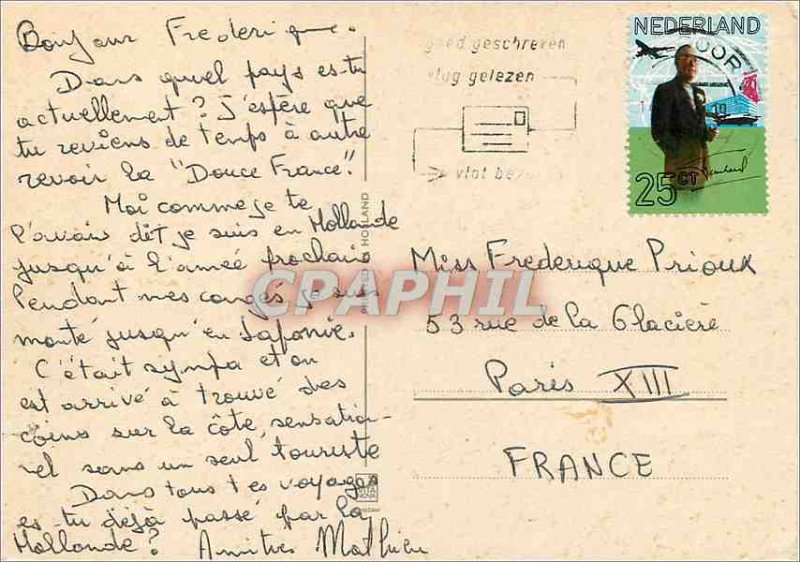 Bonjour Frederique.
Dans quel pays es-tu
actuellement? J'espère que
tu reviens de temps à autre
revoir la "Douce France".
Moi comme je te
l'avais dit je suis en Hollande
jusqu'à l'année prochaine
Pendant mes congés je suis
monté jusqu'en Laponie.
C'était sympa et on
est arrivé à trouvé des
coins sur la côte, sensation-
nel sans un seul touriste
Dans tous tes voyages
es-tu déjà passé par la
Hollande? Amitiés Mathieu
HOLLAND
goed geschreven
vlug gelezen
vlot
NEDERLAND
25CT
Miss Frederique Prioux
53 rue de la Glacière
Paris XIII
FRANCE
CPAPHIL